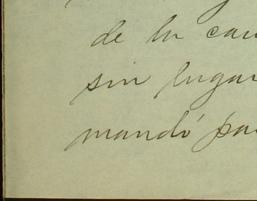 de la cau
sin lugar
mandó pa